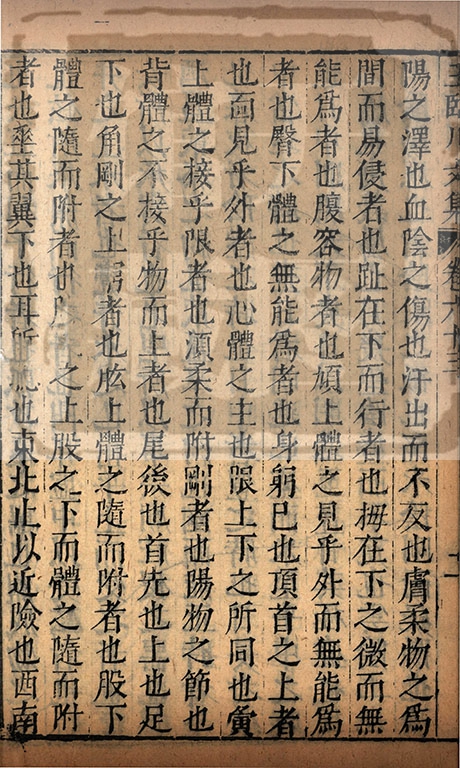 王臨川文集 卷六十三
陽之澤也血陰之傷也汗出而不反也膚柔物之爲
間而易侵者也趾在下而行者也拇在下之微而無
能爲者也腹容物者也頄上體之見乎外而無能爲
者也臀下體之無能爲者也身躬已也頂首之上者
也面見乎外者也心體之主也限上下之所同也夤
上體之接乎限者也湏柔而附剛者也陽物之節也
背體之不接乎物而上者也尾後也首先也上也足
下也角剛之上窮者也肱上體之隨而附者也股下
體之隨而附者也之上股之下而體之隨而附
者也垂其翼下也耳所也東北止以近險也西南